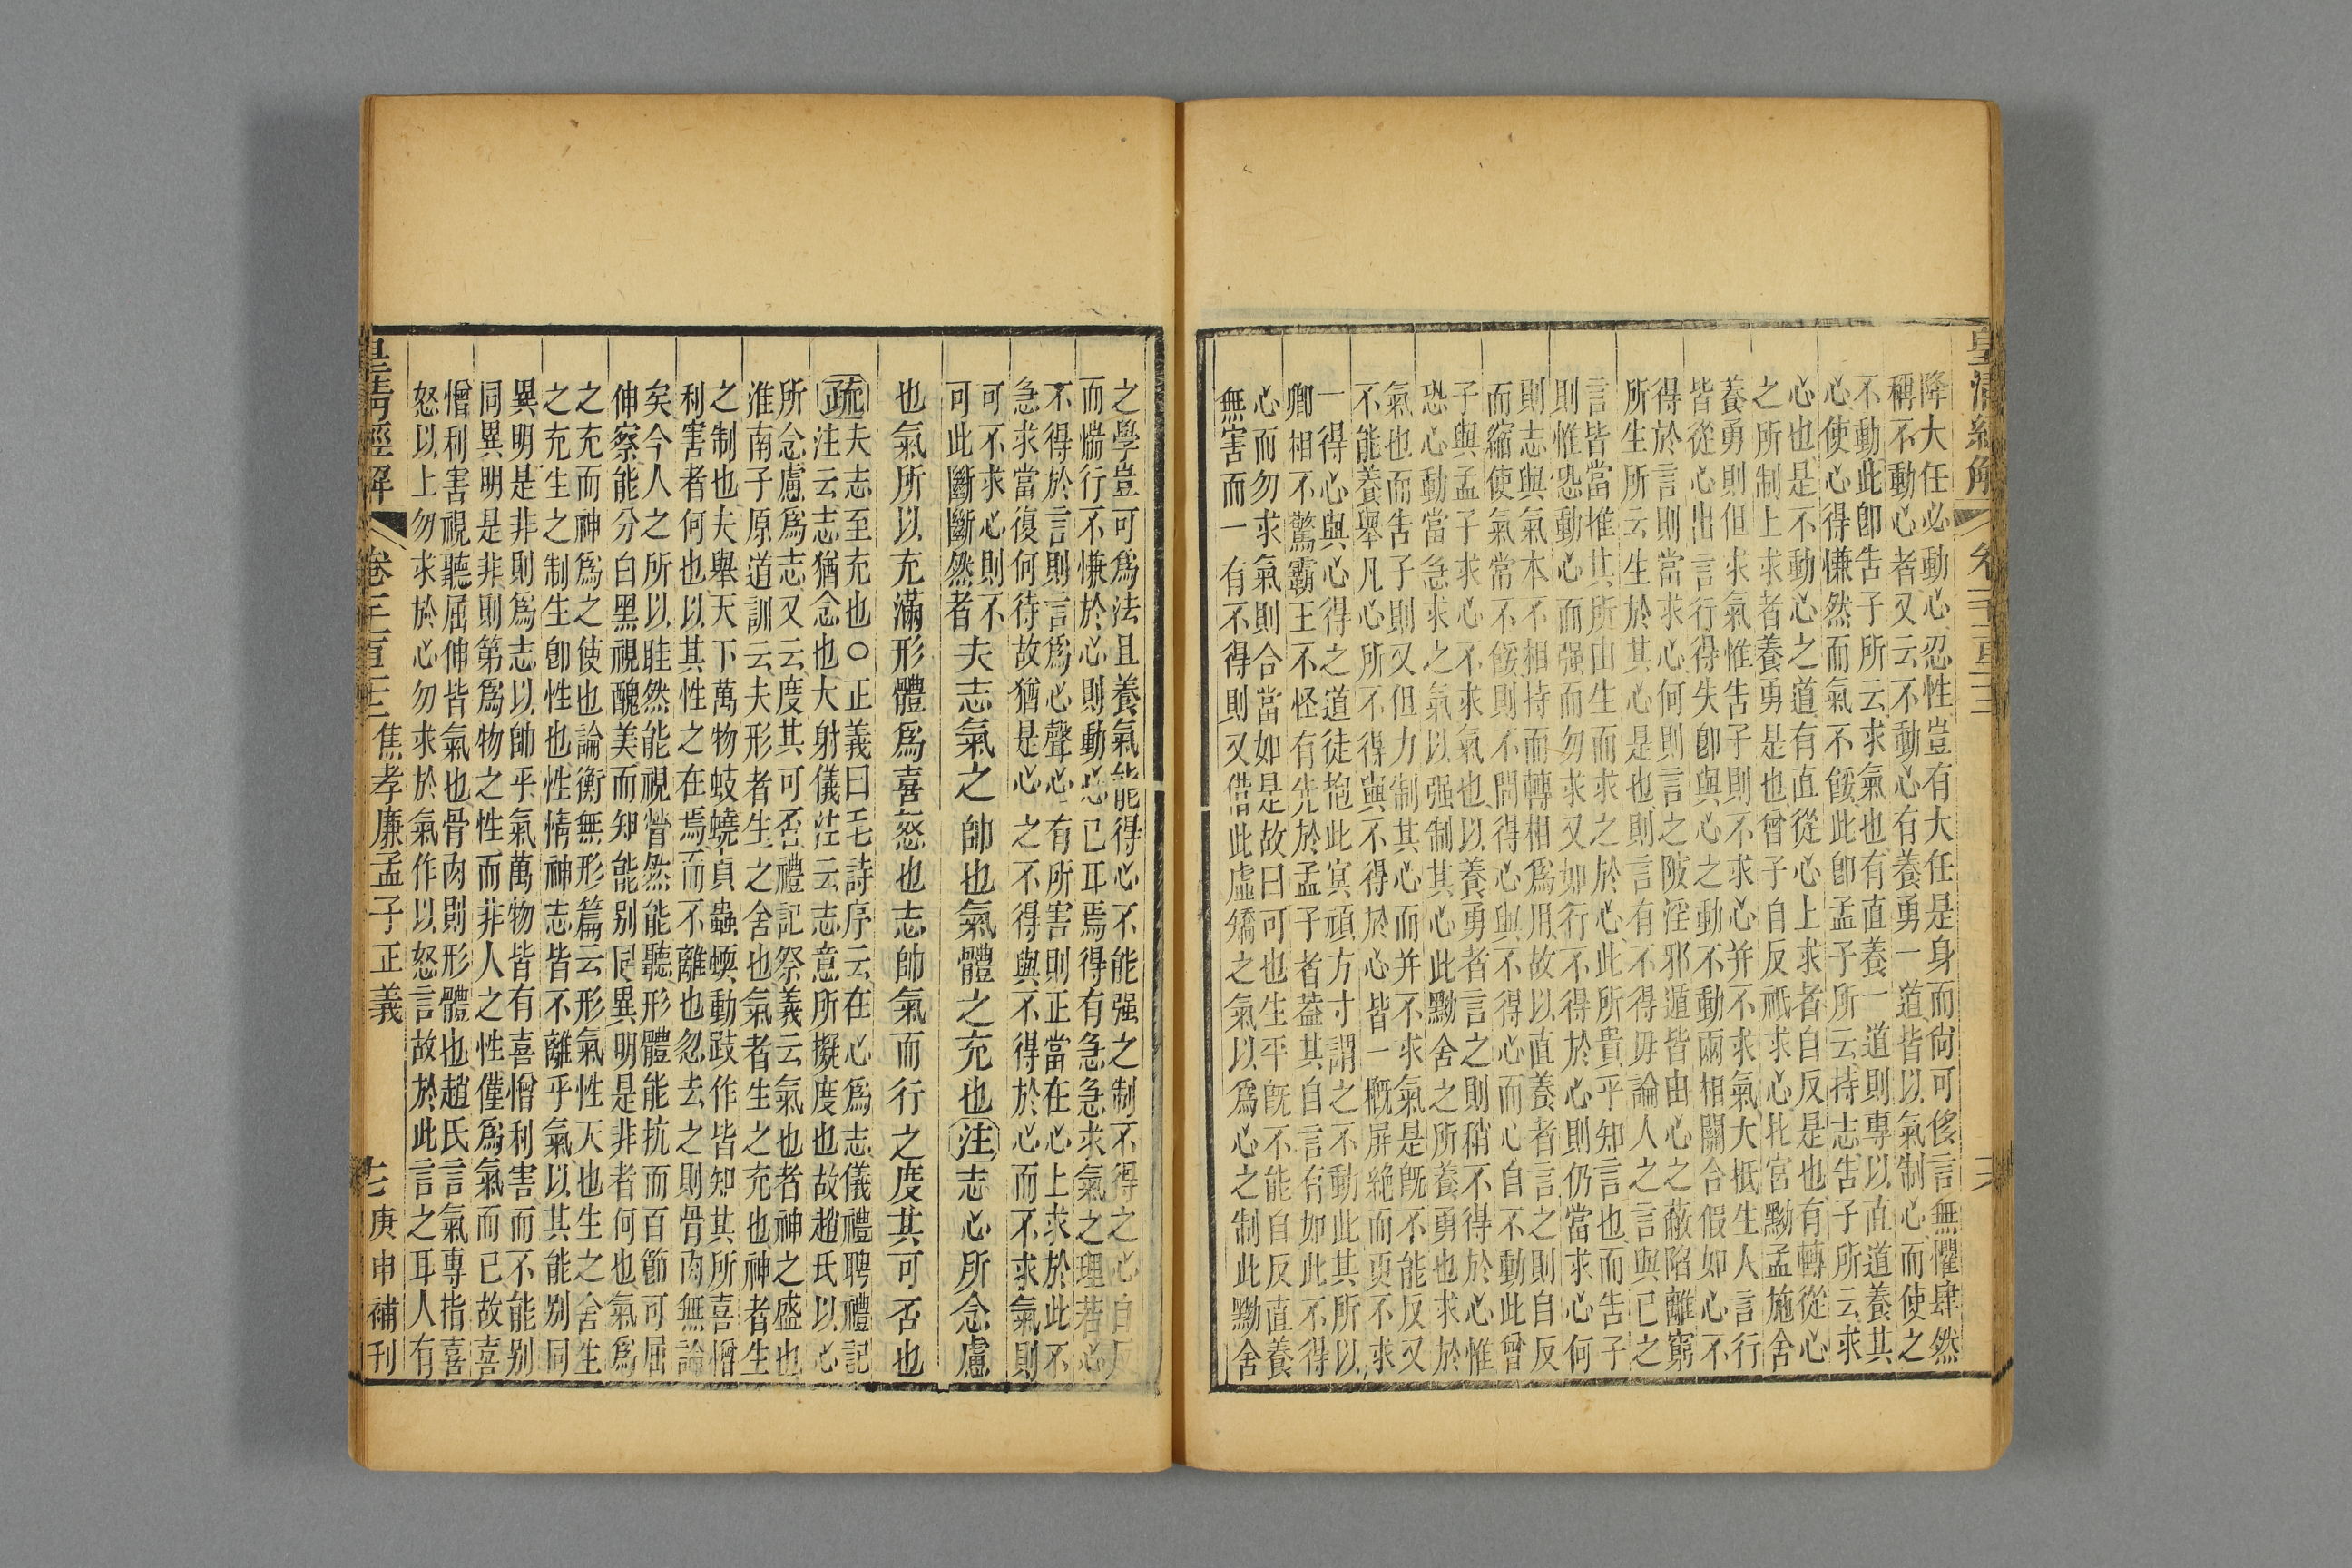 皇清經解
降大任必動心忍性豈有大任是身而尙可侈言無懼肆然
稱不動心者又云不動心有養勇一道皆以氣制心而使之
不動此卽吿子所云求氣也有直養一道則專以直道養其
心使心得慊然而氣不餒此卽孟子所云持志吿子所云求
心也是不動心之道有直從心上求者自反是也有轉從心
之所制上求者養勇是也曾子自反祇求心北宮黝孟施舍
養勇則但求氣惟吿子則不求心并不求氣大抵生人言行
皆從心出言行得失卽與心之動不動兩相關合假如心不
得於言則當求心何則言之陂淫邪遁皆由心之蔽陷離窮
所生所云生於其心是也則言有不得毋論人之言與已之
言皆當推其所由生而求之於心此所貴乎知言也而吿子
則惟恐動心而强而勿求又如行不得於心則仍當求心何
則志與氣本不相持而轉相爲用故以直養者言之則自反
而縮使氣常不餒則不問得心與不得心而心自不動此曾
子與孟子求心不求氣也以養勇者言之則稍不得於心惟
恐心動當急求之氣以强制其心此黝舍之所養勇也求於
氣也而吿子則又但力制其心而并不求氣是旣不能反又
不能養舉凡心所不得與不得於心皆一概屏絶而更不求
一得心與心得之道徒抱此冥頑方寸謂之不動此其所以
卿相不驚霸王不怪有先於孟子者葢其自言有如此不得
心而勿求氣則合當如是故曰可也生平旣不能自反直養
無害而一有不得則又借此虛矯之氣以爲心之制此黝舍
之學豈可爲法且養氣能得心不能强之制不得之心自反
而惴行不慊於心則動心已耳焉得有急急求氣之理若心
不得於言則言爲心聲心有所害則正當在心上求於此不
急求當復何待故猶是心之不得與不得於心而不求氣則
可不求心則不
可此斷斷然者夫志氣之帥也氣體之充也注志心所念慮
也氣所以充滿形體爲喜怒也志帥氣而行之度其可否也
疏夫志至充也○正義曰毛詩序云在心爲志儀禮聘禮記
注云志猶念也大射儀注云志意所擬度也故趙氏以心
所念慮爲志又云度其可否禮記祭義云氣也者神之盛也
淮南子原道訓云夫形者生之舍也氣者生之充也神者生
之制也夫舉天下萬物蚑蟯貞蟲蝡動跂作皆知其所喜憎
利害者何也以其性之在焉而不離也忽去之則骨肉無論
矣今人之所以眭然能視瞢然能聽形體能抗而百節可屈
伸察能分白黑視醜美而知能别同異明是非者何也氣爲
之充而神爲之使也論衡無形篇云形氣性天也生之舍生
之充生之制生卽性也性情神志皆不離乎氣以其能别同
異明是非則爲志以帥乎氣萬物皆有喜憎利害而不能别
同異明是非則第爲物之性而非人之性僅爲氣而已故喜
憎利害視聽屈伸皆氣也骨肉則形體也趙氏言氣專指喜
怒以上勿求於心勿求於氣作以怒言故於此言之耳人有
皇清經解 卷三 焦孝廉孟子正義 七 庚申補刊